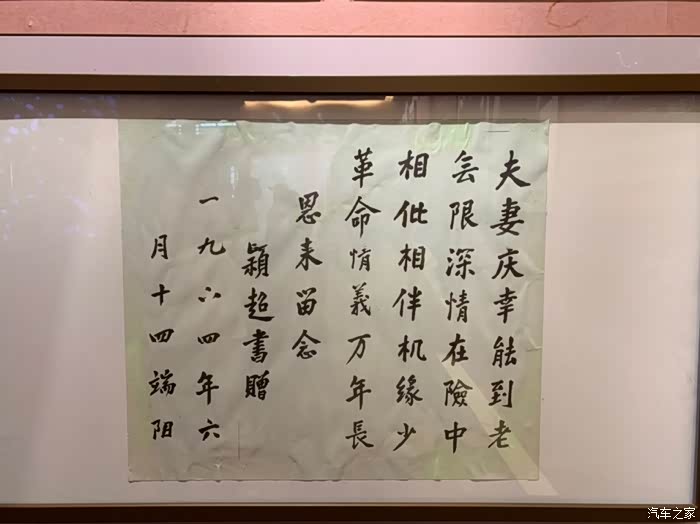 夫妻庆幸能到老
无限深情在險中
相仳相伴机缘少
革命情義万年長
恩来留念
穎超書贈
一九六四年六
月十四端阳
汽车之家